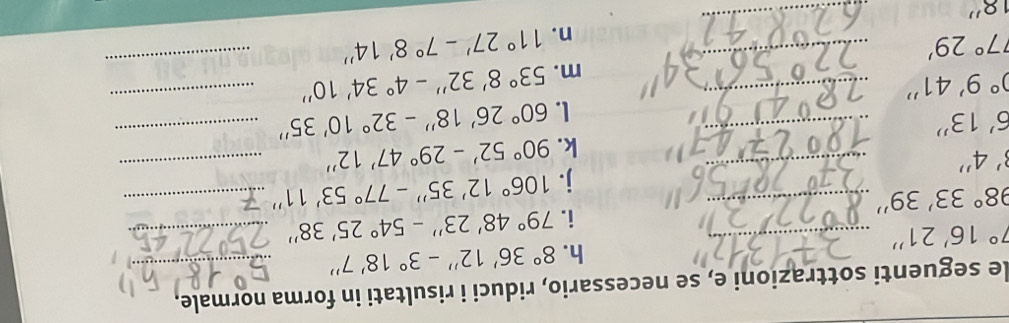 le seguenti sottrazioni e, se necessario, riduci i risultati in forma normale.
7° 16' 21'' 37° 13' 12''
98° 33' 39'' 80° 22' 3''
3' 4'' 37° 28' 56''
6' 13'' 18° 27' 47''
0° 9' 41'' 28° 41' 9''
77° 29' 22° 56' 34''
18'' 62° 8' 42
h. 8° 36' 12'' – 3° 18' 7'' 5° 18' 5''
i. 79° 48' 23'' – 54° 25' 38'' 25° 22' 45
j. 106° 12' 35'' – 77° 53' 11'' 7
k. 90° 52' – 29° 47' 12''
l. 60° 26' 18'' – 32° 10' 35''
m. 53° 8' 32'' – 4° 34' 10''
n. 11° 27' – 7° 8' 14''